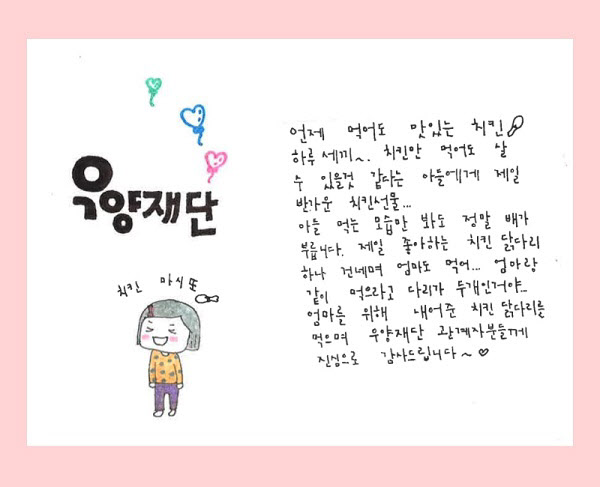 우양재단
치킨 마시또
언제 먹어도 맛있는 치킨
하루 세끼~. 치킨만 먹어도 살
수 있을것 같다는 아들에게 제일
반가운 치킨선물...
아들 먹는 모습만 봐도 정말 배가
부릅니다. 제일 좋아하는 치킨 닭다리
하나 건네며 엄마도 먹어... 엄마랑
같이 먹으라고 다리가 두개인거야..
엄마를 위해 내어준 치킨 닭다리를
먹으며 우양재단 관계자분들께
진심으로 감사드립니다~♡